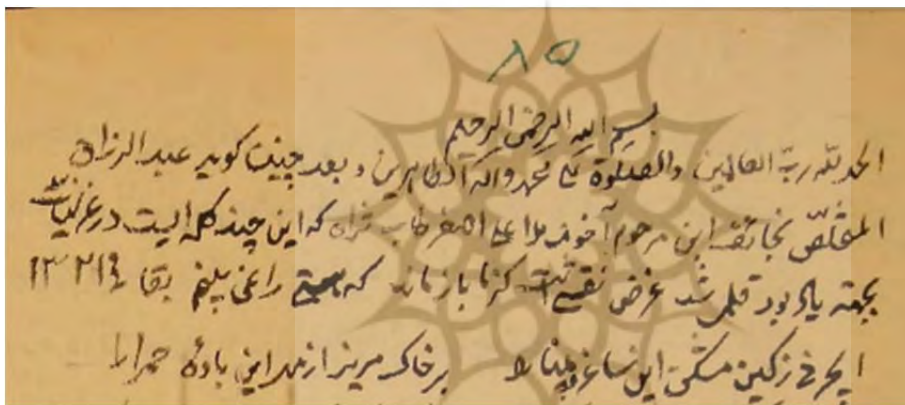 ۸۵
بسم الله الرحمن الرحیم
الحمد لله رب العالمین والصلوة علی محمد واله الطاهرین و بعد چنین کوید عبد الرزاق
المتخلص بخائف ابن مرحوم آخوند ملا علی اصغر طاب ثراه که این چند کلمه ایست در غزلیات
بجهته یاد بود قلمی شد غرض نقشیست کز ما باز ماند که هستی را نمی بینم بقا
ایحرفی زکین مشکن این ساغر و مینا را بر خاک مریز از مد این بادهٔ حمرا را